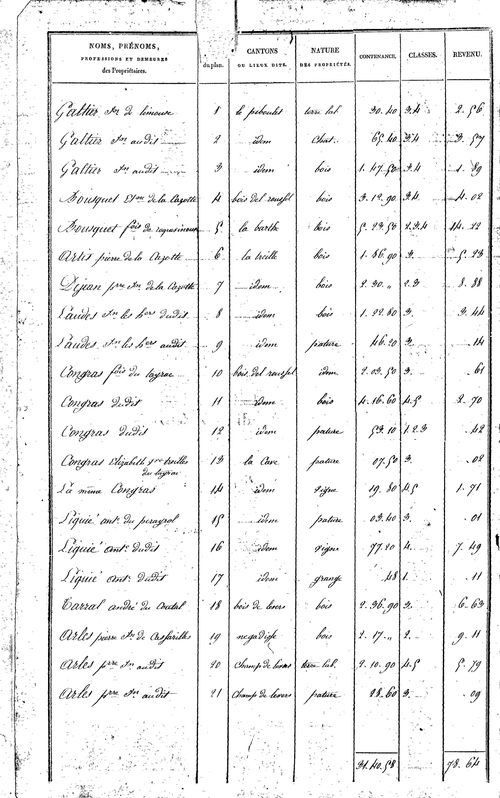 NOMS, PRÉNOMS, PROFESSIONS ET DEMEURES des Propriétaires. du plan. CANTONS OU LIEUX DITS. NATURE DES PROPRIÉTÉS. CONTENANCE. CLASSES. REVENU.
Galtier Jn de limouse 1 le piboulet terre lab. 30.40 3.4 2.56
Galtier Jn audit 2 idem Chat. 65.40 3.4 3.57
Galtier Jn audit 3 idem bois 1.47.50 3.4 1.89
Bousquet de la Cazotte 4 bois del bois 3.12.90 3.4 4.02
Bousquet fois de 5 la barthe bois 5.23.50 2.3.4 14.22
Artis pierre de la Cazotte 6 la treille bois 1.86.90 3. 5.23
Dejean pre Jn de la Cazotte 7 idem bois 2.30.„ 2.3 8.88
Landes Jn les hers dudit 8 idem bois 1.22.80 3. 3.44
Landes Jn les hers audit 9 idem pature 46.20 3. 14
Congras fois du layrac 10 bois del idem 2.03.50 3. 61
Congras dudit 11 idem bois 4.16.60 4.5 2.70
Congras dudit 12 idem pature 53.10 1.2.3 .42
Congras Elizabeth 13 la Cave pature 07.50 3. .02
du layrac
La même Congras 14 idem vigne 19.80 4.5 1.71
Liquié ant. du perayrol 15 idem pature 03.40 3. .01
Liquié ant. dudit 16 idem vigne 77.20 4. 7.49
Liquié ant. dudit 17 idem grange .48 1. .11
Carral andré du Cautal 18 bois de levers bois 2.36.90 3. 6.63
Arles pierre Jn de 19 negadisse bois 2.17.„ 2. 9.11
Arles pre Jn audit 20 Champ de levers terre lab. 2.10.90 4.5 5.79
Arles pre Jn audit 21 Champ de levers pature 28.60 3. .09
31.40.58 78.64